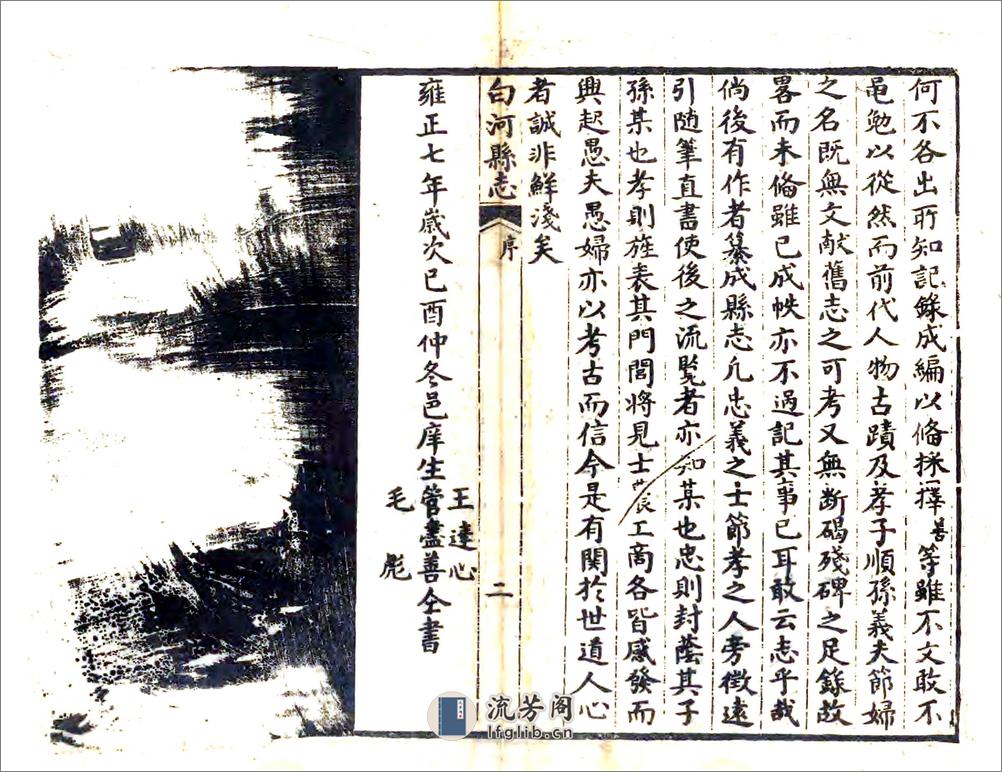 何不各出所知記錄成編以備採擇善等雖不文敢不
邑勉以從然而前代人物古蹟及孝子順孫義夫節婦
之名既無文献舊志之可考又無断碣殘碑之足錄故
畧而未俻雖已成帙亦不過記其事已耳敢云志乎哉
倘後有作者纂成縣志凢忠義之士節孝之人旁徴遠
引随筆直書使後之流覧者亦知某也忠則封蔭其子
孫某也孝則旌表其門閭將見士農工商各皆感發而
興起愚夫愚婦亦以考古而信今是有関於世道人心
者誠非鮮淺矣
白河縣志 序 二
雍正七年歲次己酉仲冬邑庠生
王逵心
管盡善仝書
毛彪
流芳阁
lfglib.cn